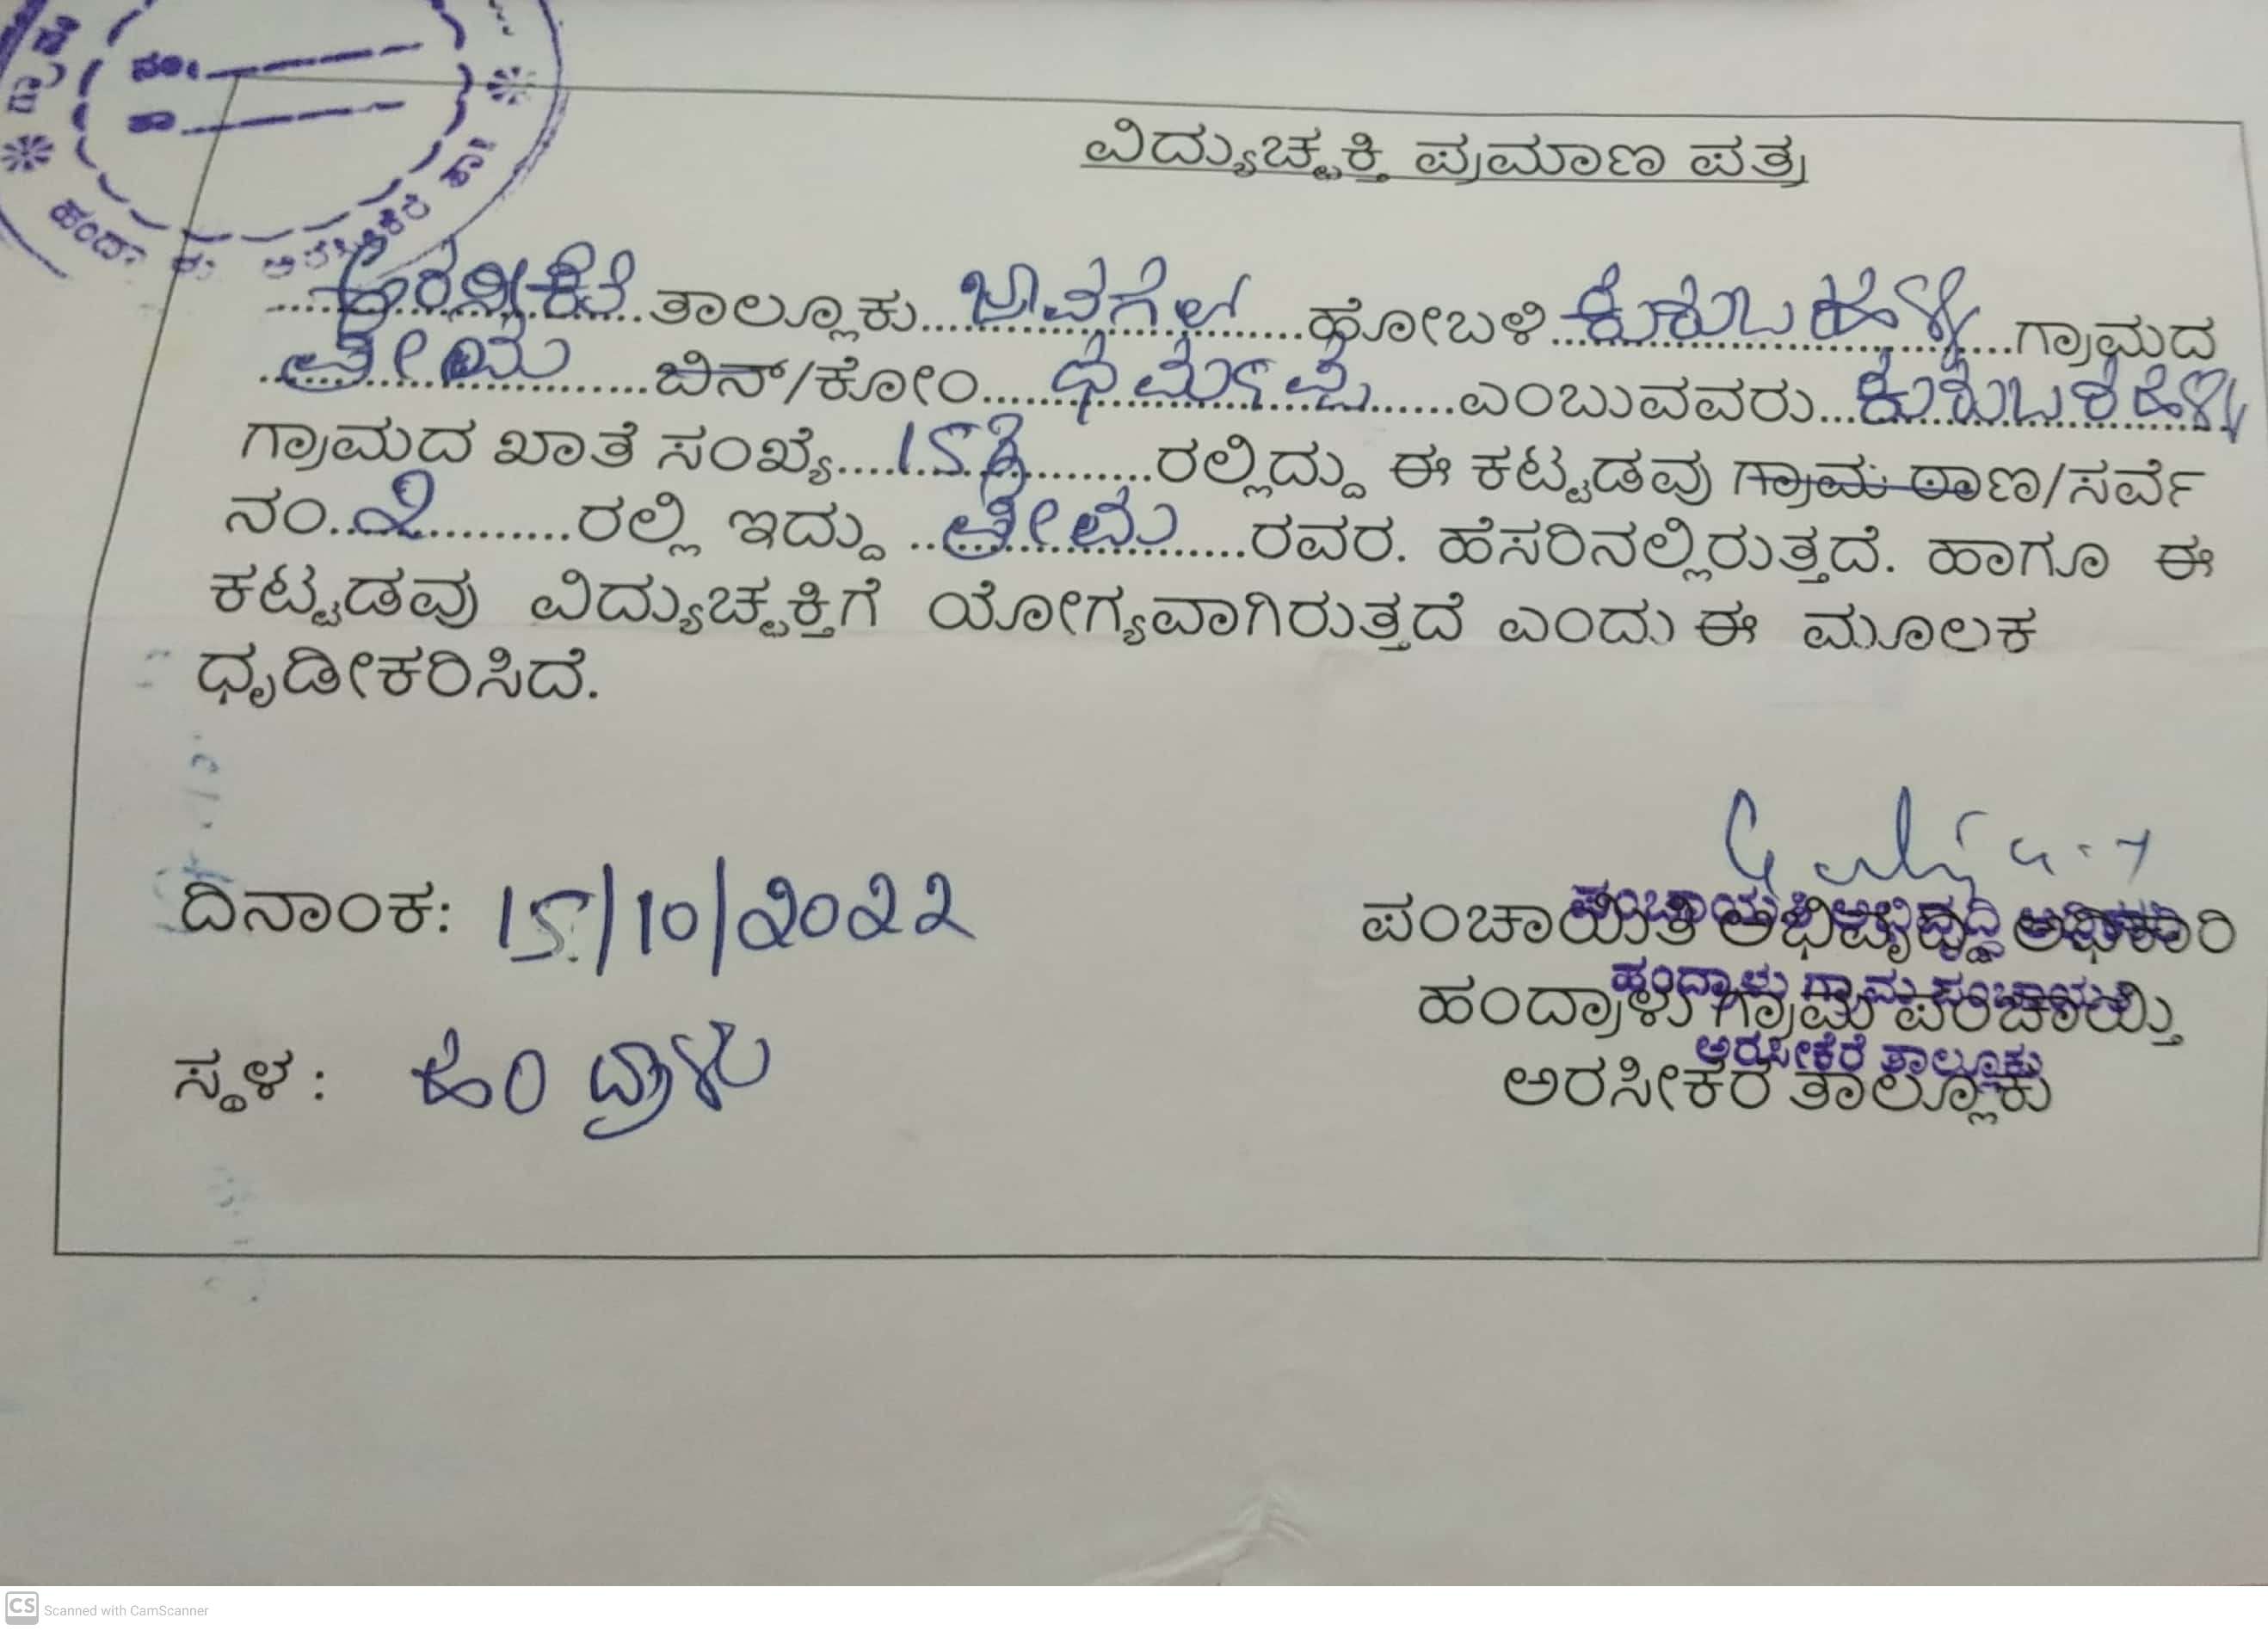 ನಂ.
ಹಂದ್ರಾಳು ಅರಸೀಕೆರೆ ತಾ
ವಿದ್ಯುಚ್ಛಕ್ತಿ ಪ್ರಮಾಣ ಪತ್ರ
ಅರಸೀಕೆರೆ ತಾಲ್ಲೂಕು ಜಾವಗಲ್ ಹೋಬಳಿ ಗ್ರಾಮದ
ಬಿನ್/ಕೋಂ ಧರ್ಮಪ್ಪ ಎಂಬುವವರು
ಗ್ರಾಮದ ಖಾತೆ ಸಂಖ್ಯೆ 153 ರಲ್ಲಿದ್ದು ಈ ಕಟ್ಟಡವು ಗ್ರಾಮ ಠಾಣ/ಸರ್ವೆ
ನಂ. 2 ರಲ್ಲಿ ಇದ್ದು ರವರ. ಹೆಸರಿನಲ್ಲಿರುತ್ತದೆ. ಹಾಗೂ ಈ
ಕಟ್ಟಡವು ವಿದ್ಯುಚ್ಛಕ್ತಿಗೆ ಯೋಗ್ಯವಾಗಿರುತ್ತದೆ ಎಂದು ಈ ಮೂಲಕ
ಧೃಡೀಕರಿಸಿದೆ.
ದಿನಾಂಕ: 15/10/2022
ಪಂಚಾಯಿತಿ ಅಭಿವೃದ್ಧಿ ಅಧಿಕಾರಿ
ಪಂಚಾಯತಿ ಅಭಿವೃದ್ಧಿ ಅಧಿಕಾರಿ
ಹಂದ್ರಾಳು ಗ್ರಾಮ ಪಂಚಾಯ್ತಿ
ಹಂದ್ರಾಳು ಗ್ರಾಮ ಪಂಚಾಯಿತಿ
ಅರಸೀಕೆರೆ ತಾಲ್ಲೂಕು
ಅರಸೀಕೆರೆ ತಾಲ್ಲೂಕು
ಸ್ಥಳ : ಹಂದ್ರಾಳು
CS Scanned with CamScanner